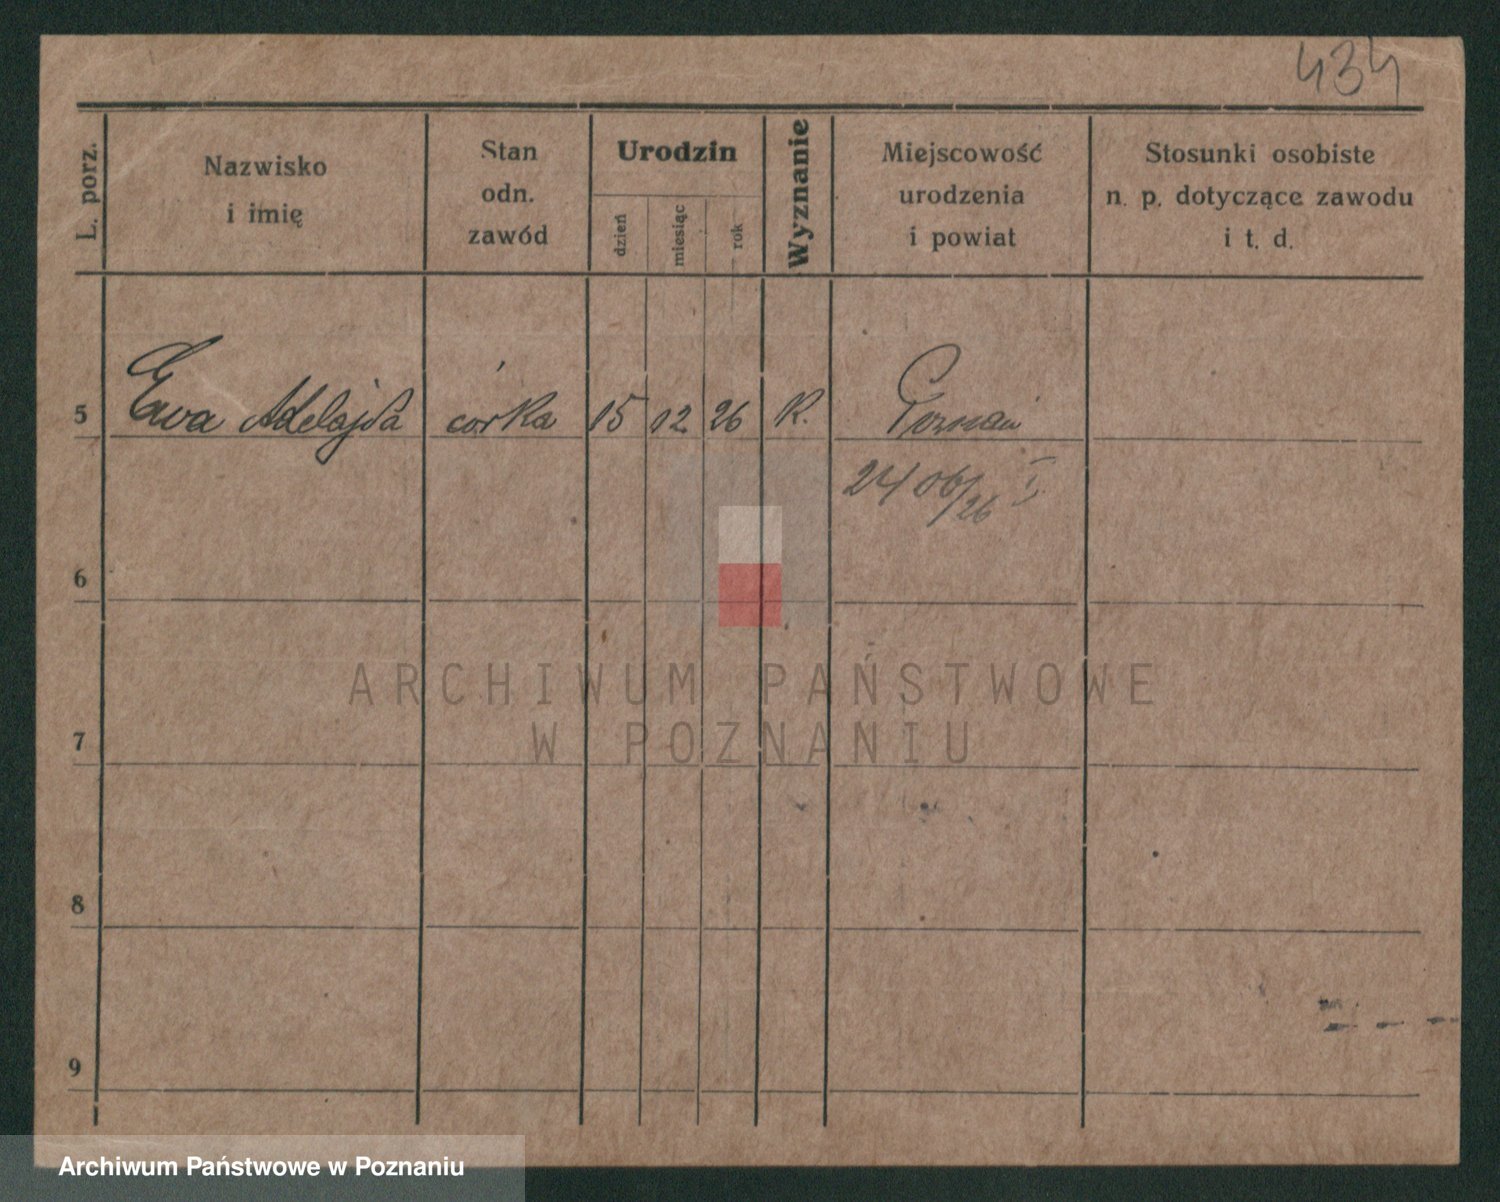 434
L. porz.
Nazwisko
i imię
Stan
odn.
zawód
Urodzin
dzień
miesiąc
rok
Wyznanie
Miejscowość
urodzenia
i powiat
Stosunki osobiste
n. p. dotyczące zawodu
i t. d.
5 Ewa Adelajda córka 15 12 26 R. Poznań
2406/26 I
6
ARCHIWUM PAŃSTWOWE
W POZNANIU
7
8
9
Archiwum Państwowe w Poznaniu